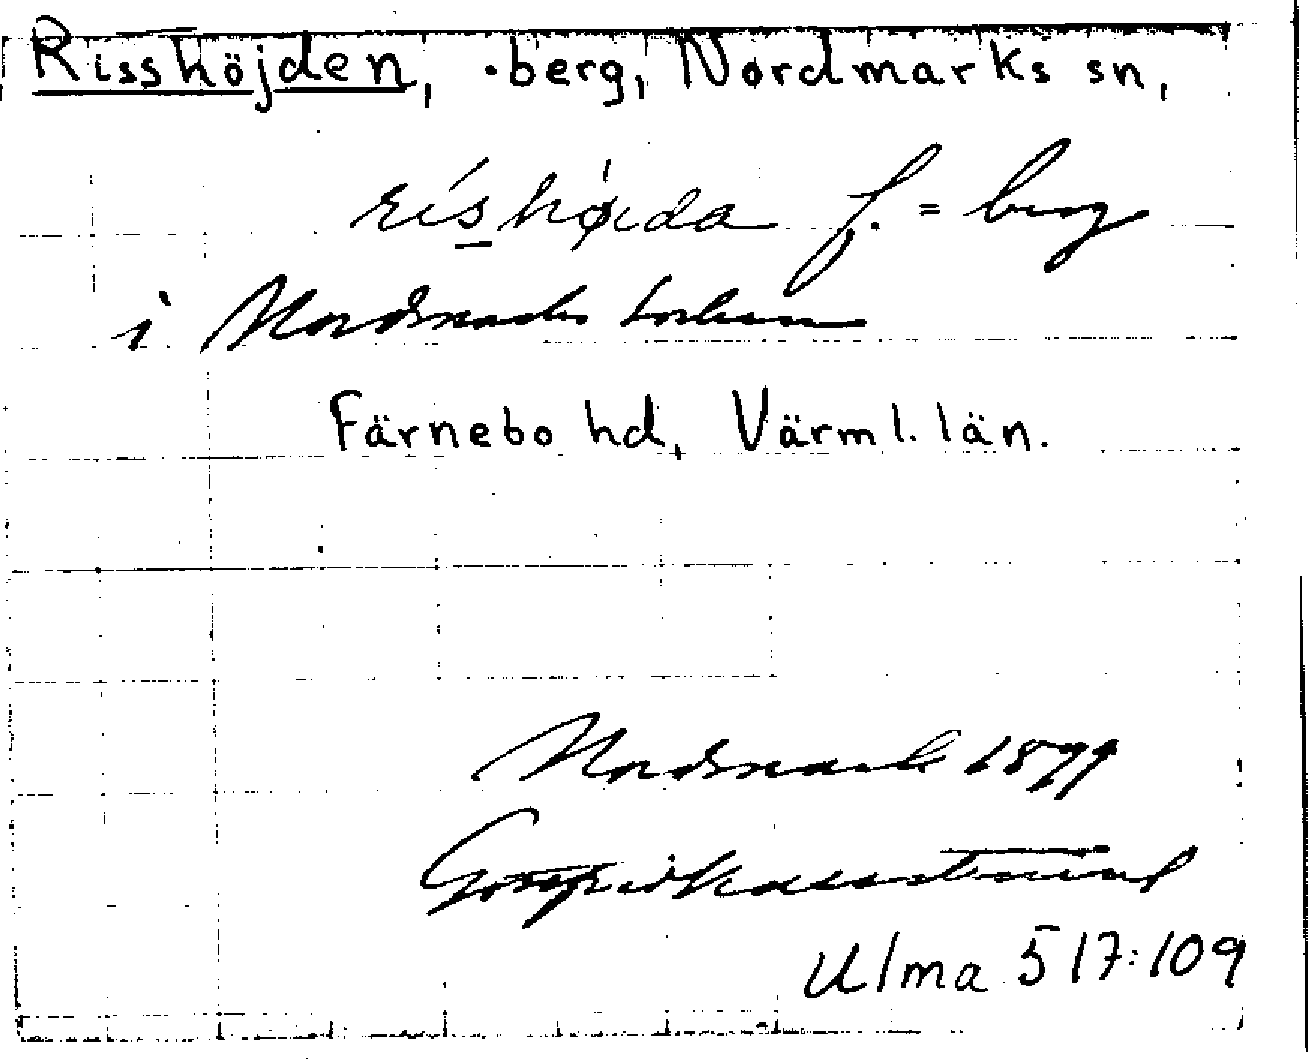 Risshöjden, ·berg, Nordmarks sn,
ríshǿıda f. = berg
i Nordmarks socken
Färnebo hd, Värml. län.
Nordmark 1899
Gottfrid Kallstenius
Ulma 517:109